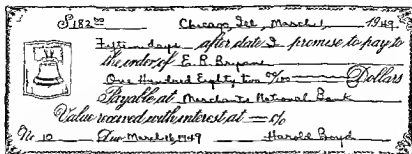 $182 00/ Chicago, Ill., March 1, 1949
Fifteen days after date I promise to pay to
the order of E. R. Bryant
One Hundred Eighty two no/100 Dollars
Payable at Merchants National Bank
Value received with interest at — %
No 10 Due March 16, 1949 Harold Boyd